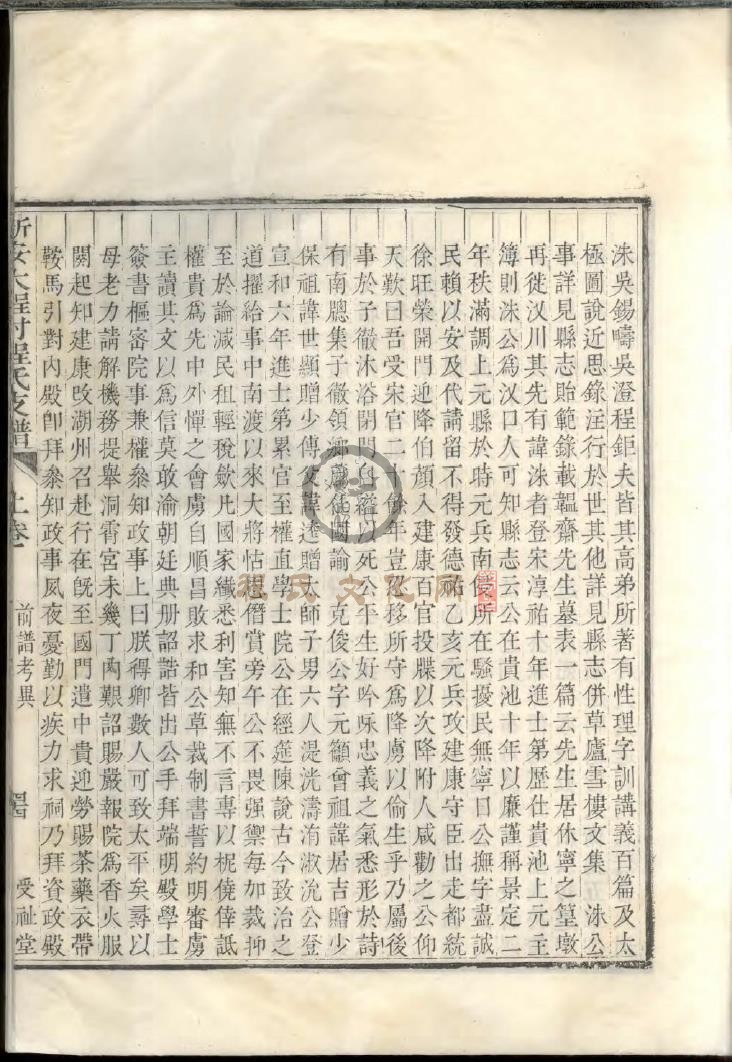 洙吳錫疇吳澄程鉅夫皆其高弟所著有性理字訓講義百篇及太
極圖說近思錄注行於世其他詳見縣志併草廬雪樓文集 洙公
事詳見縣志貽範錄載韞齋先生墓表一篇云先生居休寧之篁墩
再徙汊川其先有諱洙者登宋淳祐十年進士第歷仕貴池上元主
簿則洙公爲汊口人可知縣志云公在貴池十年以廉謹稱景定二
年秩滿調上元縣於時元兵南侵所在騷擾民無寧日公撫字盡誠
民賴以安及代請留不得發德祐乙亥元兵攻建康守臣出走都統
徐旺榮開門迎降伯顏入建康百官投牒以次降附人咸勸之公仰
天歎曰吾受宋官二十餘年豈忍移所守爲降虜以偷生乎乃屬後
事於子徹沐浴閉閣自縊以死公平生好吟咏忠義之氣悉形於詩
有南聰集子徹領鄉薦 克俊公字元籲會祖諱居吉贈少
保祖諱世顯贈少傅父諱逵贈太師子男六人湜洸濤洧淑沇公登
宣和六年進士第累官至權直學士院公在經筵陳說古今致治之
道擢給事中南渡以來大將怙恩僭賞旁午公不畏强禦每加裁抑
至於論減民租輕稅歛凡國家纖悉利害知無不言專以柅僥倖詆
權貴爲先中外憚之會虜自順昌敗求和公草裁制書誓約明審虜
主讀其文以爲信莫敢渝朝廷典册詔誥皆出公手拜端明殿學士
簽書樞密院事兼權叅知政事上曰朕得卿數人可致太平矣尋以
母老力請解機務提舉洞霄宮未幾丁內艱詔賜嚴報院爲香火服
闋起知建康改湖州召赴行在旣至國門遣中貴迎勞賜茶藥衣帶
鞍馬引對內殿卽拜叅知政事夙夜憂勤以疾力求祠乃拜資政殿
新安大程村程氏支譜 上卷 前譜考異 受祉堂
程氏文化网